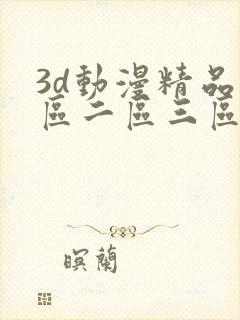 3d動漫精品
區二區三區
暝蘭